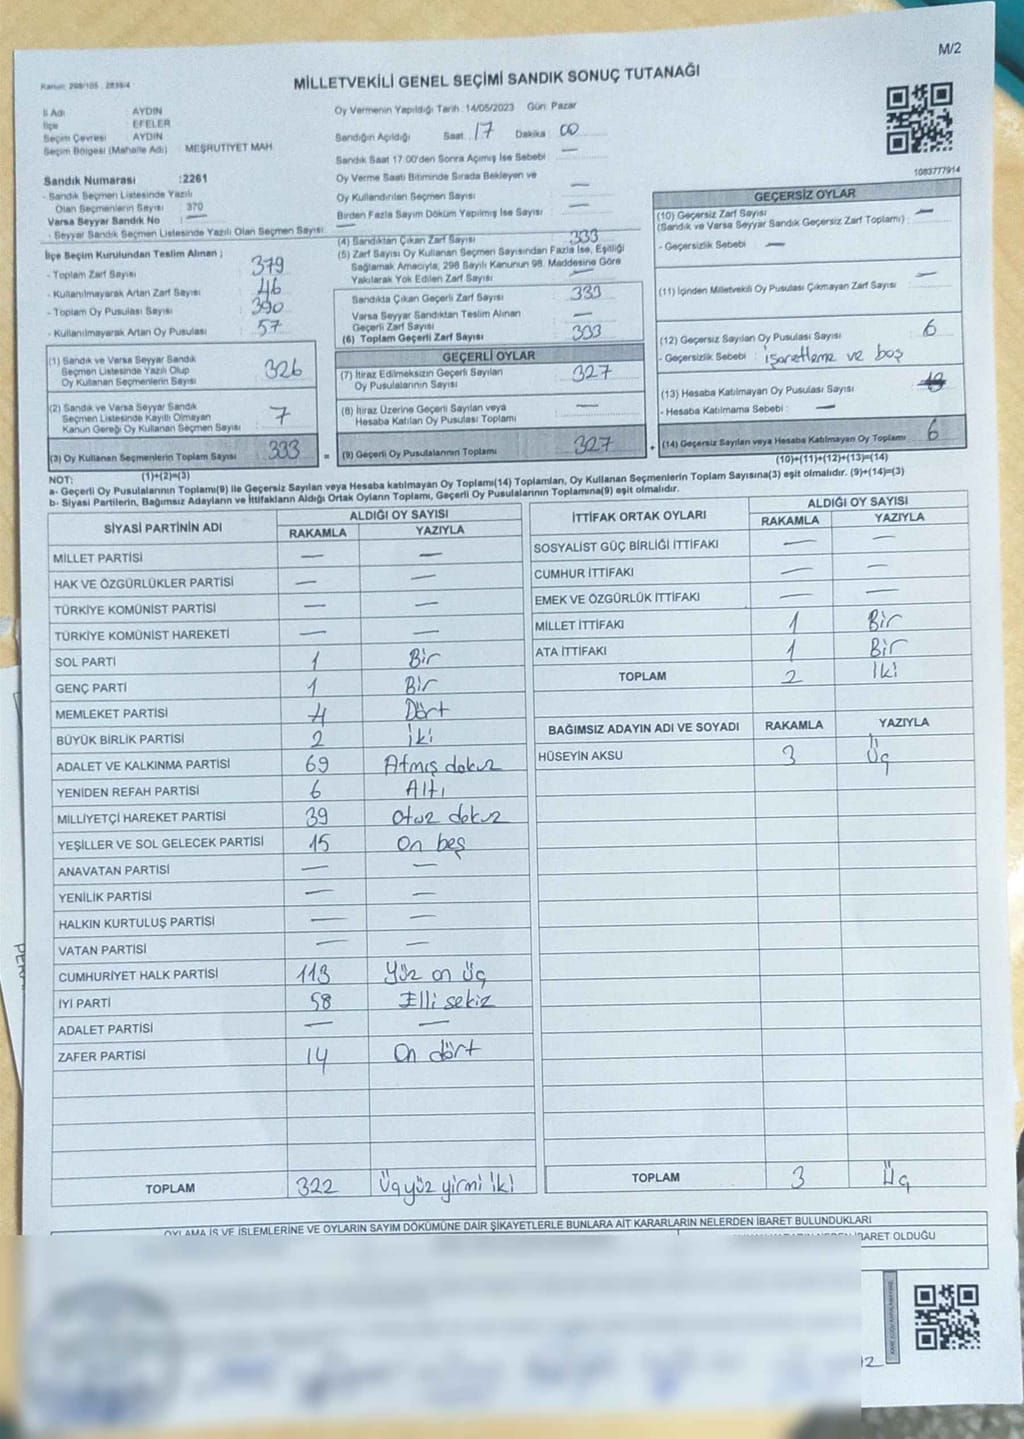 M/2
Kanun: 298/105 - 2839/4
MİLLETVEKİLİ GENEL SEÇİMİ SANDIK SONUÇ TUTANAĞI
İl Adı : AYDIN
İlçe : EFELER
Seçim Çevresi : AYDIN
Seçim Bölgesi (Mahalle Adı) : MEŞRUTİYET MAH.
Sandık Numarası :2261
- Sandık Seçmen Listesinde Yazılı
Olan Seçmenlerin Sayısı : 370
Varsa Seyyar Sandık No : —
- Seyyar Sandık Seçmen Listesinde Yazılı Olan Seçmen Sayısı: —
Oy Vermenin Yapıldığı Tarih :14/05/2023 Gün: Pazar
Sandığın Açıldığı Saat: 17 Dakika: 00
Sandık Saat 17.00'den Sonra Açımış İse Sebebi : —
Oy Verme Saati Bitiminde Sırada Bekleyen ve
Oy Kullandırılan Seçmen Sayısı : —
Birden Fazla Sayım Döküm Yapılmış İse Sayısı : —
1083777914
İlçe Seçim Kurulundan Teslim Alınan ;
- Toplam Zarf Sayısı : 379
- Kullanılmayarak Artan Zarf Sayısı : 46
- Toplam Oy Pusulası Sayısı : 390
- Kullanılmayarak Artan Oy Pusulası : 57
(1) Sandık ve Varsa Seyyar Sandık
Seçmen Listesinde Yazılı Olup
Oy Kullanan Seçmenlerin Sayısı : 326
(2) Sandık ve Varsa Seyyar Sandık
Seçmen Listesinde Kayıtlı Olmayan
Kanun Gereği Oy Kullanan Seçmen Sayısı : 7
(3) Oy Kullanan Seçmenlerin Toplam Sayısı : 333
(1)+(2)=(3)
(4) Sandıktan Çıkan Zarf Sayısı : 333
(5) Zarf Sayısı Oy Kullanan Seçmen Sayısından Fazla İse, Eşitliği
Sağlamak Amacıyla, 298 Sayılı Kanunun 98. Maddesine Göre
Yakılarak Yok Edilen Zarf Sayısı : —
Sandıkta Çıkan Geçerli Zarf Sayısı : 333
Varsa Seyyar Sandıktan Teslim Alınan
Geçerli Zarf Sayısı : —
(6) Toplam Geçerli Zarf Sayısı : 333
GEÇERLİ OYLAR
(7) İtiraz Edilmeksizin Geçerli Sayılan
Oy Pusulalarının Sayısı : 327
(8) İtiraz Üzerine Geçerli Sayılan veya
Hesaba Katılan Oy Pusulası Toplamı : —
= (9) Geçerli Oy Pusulalarının Toplamı : 327
GEÇERSİZ OYLAR
(10) Geçersiz Zarf Sayısı : —
(Sandık ve Varsa Seyyar Sandık Geçersiz Zarf Toplamı)
- Geçersizlik Sebebi : —
(11) İçinden Milletvekili Oy Pusulası Çıkmayan Zarf Sayısı : —
(12) Geçersiz Sayılan Oy Pusulası Sayısı : 6
- Geçersizlik Sebebi : işaretleme ve boş
(13) Hesaba Katılmayan Oy Pusulası Sayısı :
- Hesaba Katılmama Sebebi : —
+ (14) Geçersiz Sayılan veya Hesaba Katılmayan Oy Toplamı : 6
(10)+(11)+(12)+(13)=(14)
NOT:
a- Geçerli Oy Pusulalarının Toplamı(9) ile Geçersiz Sayılan veya Hesaba katılmayan Oy Toplamı(14) Toplamları, Oy Kullanan Seçmenlerin Toplam Sayısına(3) eşit olmalıdır. (9)+(14)=(3)
b- Siyasi Partilerin, Bağımsız Adayların ve İttifakların Aldığı Ortak Oyların Toplamı, Geçerli Oy Pusulalarının Toplamına(9) eşit olmalıdır.
SİYASİ PARTİNİN ADI ALDIĞI OY SAYISI
RAKAMLA YAZIYLA
MİLLET PARTİSİ — —
HAK VE ÖZGÜRLÜKLER PARTİSİ — —
TÜRKİYE KOMÜNİST PARTİSİ — —
TÜRKİYE KOMÜNİST HAREKETİ — —
SOL PARTİ 1 Bir
GENÇ PARTİ 1 Bir
MEMLEKET PARTİSİ 4 Dört
BÜYÜK BİRLİK PARTİSİ 2 İki
ADALET VE KALKINMA PARTİSİ 69 Atmış dokuz
YENİDEN REFAH PARTİSİ 6 Altı
MİLLİYETÇİ HAREKET PARTİSİ 39 Otuz dokuz
YEŞİLLER VE SOL GELECEK PARTİSİ 15 On beş
ANAVATAN PARTİSİ — —
YENİLİK PARTİSİ — —
HALKIN KURTULUŞ PARTİSİ — —
VATAN PARTİSİ — —
CUMHURİYET HALK PARTİSİ 113 Yüz on üç
İYİ PARTİ 58 Elli sekiz
ADALET PARTİSİ — —
ZAFER PARTİSİ 14 On dört
TOPLAM 322 Üçyüz yirmi iki
İTTİFAK ORTAK OYLARI ALDIĞI OY SAYISI
RAKAMLA YAZIYLA
SOSYALİST GÜÇ BİRLİĞİ İTTİFAKI — —
CUMHUR İTTİFAKI — —
EMEK VE ÖZGÜRLÜK İTTİFAKI — —
MİLLET İTTİFAKI 1 Bir
ATA İTTİFAKI 1 Bir
TOPLAM 2 İki
BAĞIMSIZ ADAYIN ADI VE SOYADI RAKAMLA YAZIYLA
HÜSEYİN AKSU 3 Üç
TOPLAM 3 Üç
OYLAMA İŞ VE İŞLEMLERİNE VE OYLARIN SAYIM DÖKÜMÜNE DAİR ŞİKAYETLERLE BUNLARA AİT KARARLARIN NELERDEN İBARET BULUNDUKLARI
İBARET OLDUĞU